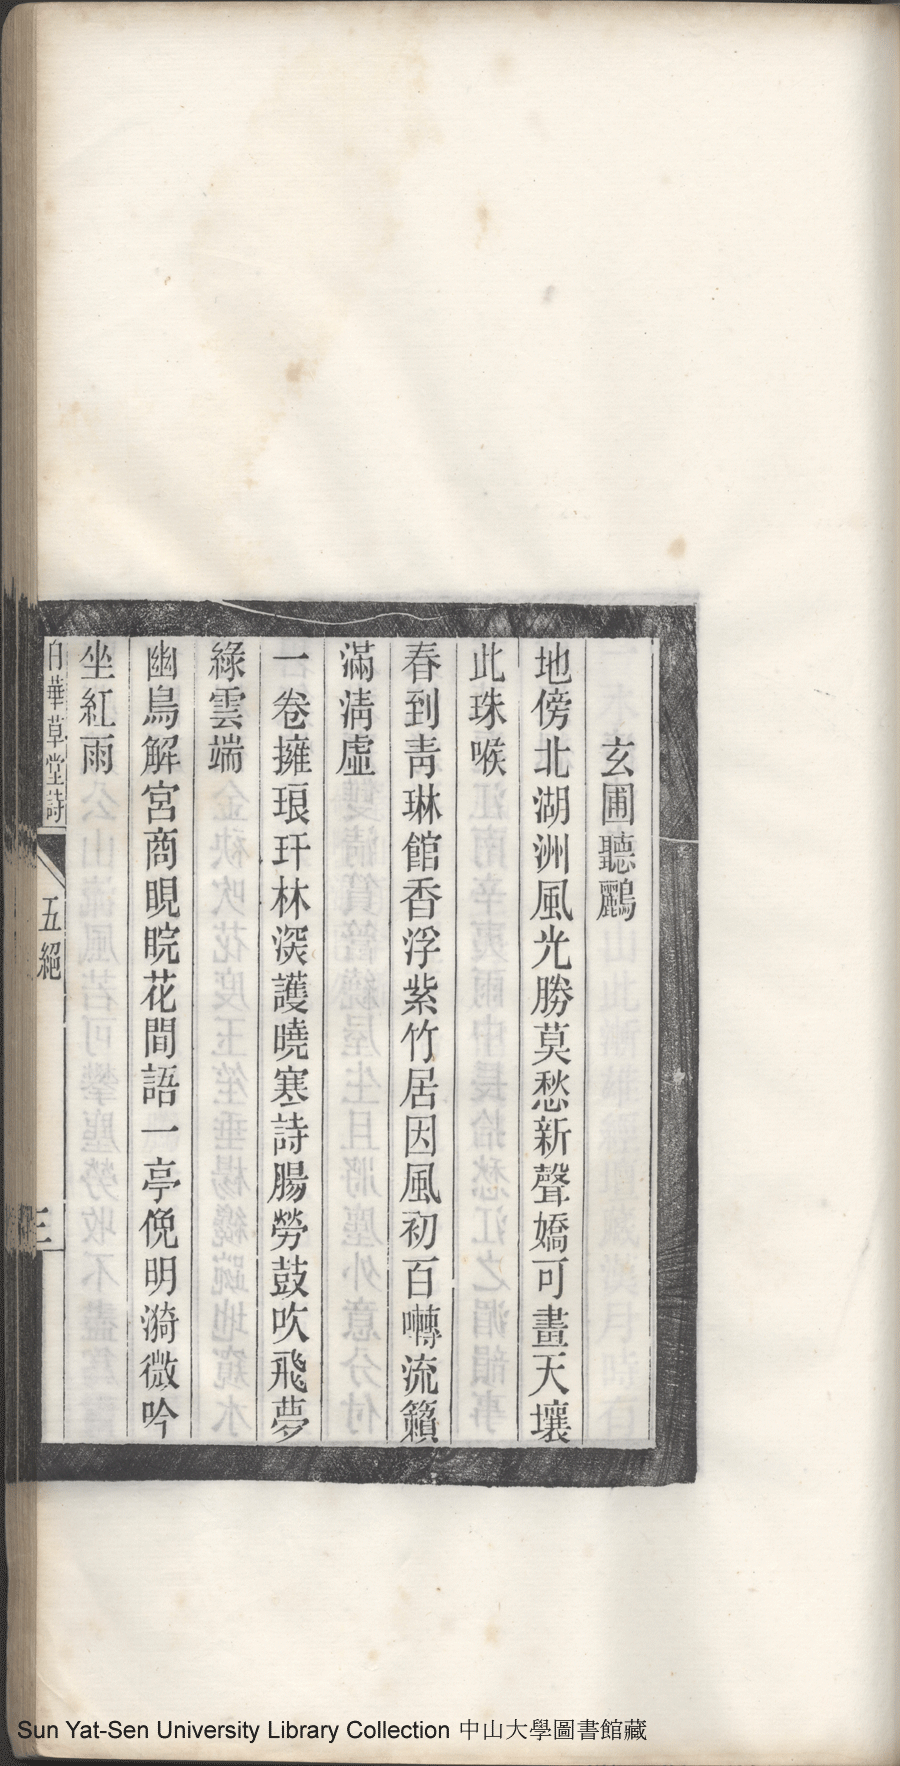 玄圃聽鸝
地傍北湖洲風光勝莫愁新聲嬌可畫天壤
此珠喉
春到靑琳館香浮紫竹居因風初百囀流籟
滿淸虛
一卷擁琅玕林深護曉寒詩腸勞鼓吹飛夢
綠雲端
幽鳥解宮商睍睆花間語一亭俛明漪微吟
坐紅雨
白華草堂詩
五絕
三
Sun Yat-Sen University Library Collection 中山大學圖書館藏